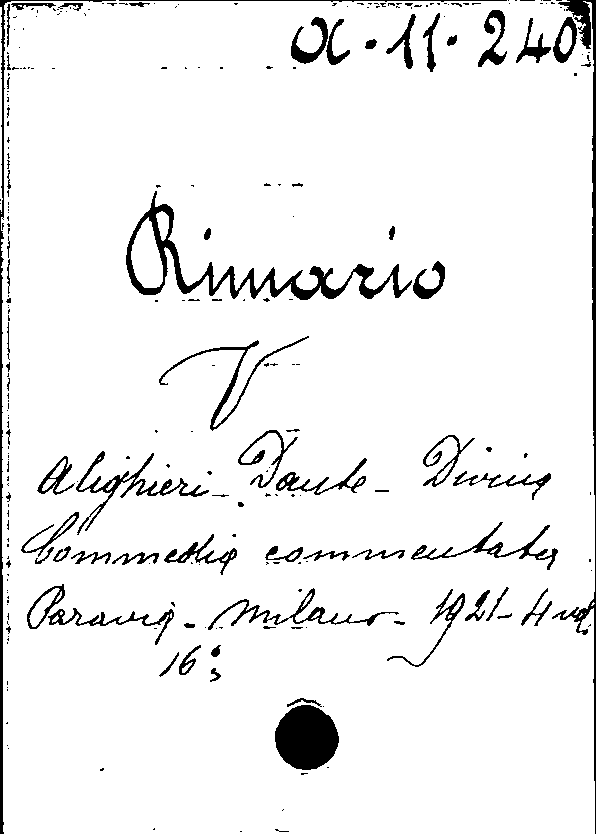 α·11·240
Rimario
V
Alighieri - Dante - Divina
Commedia commentata
Paravia - Milano - 1921 - 4 vol.
16°;